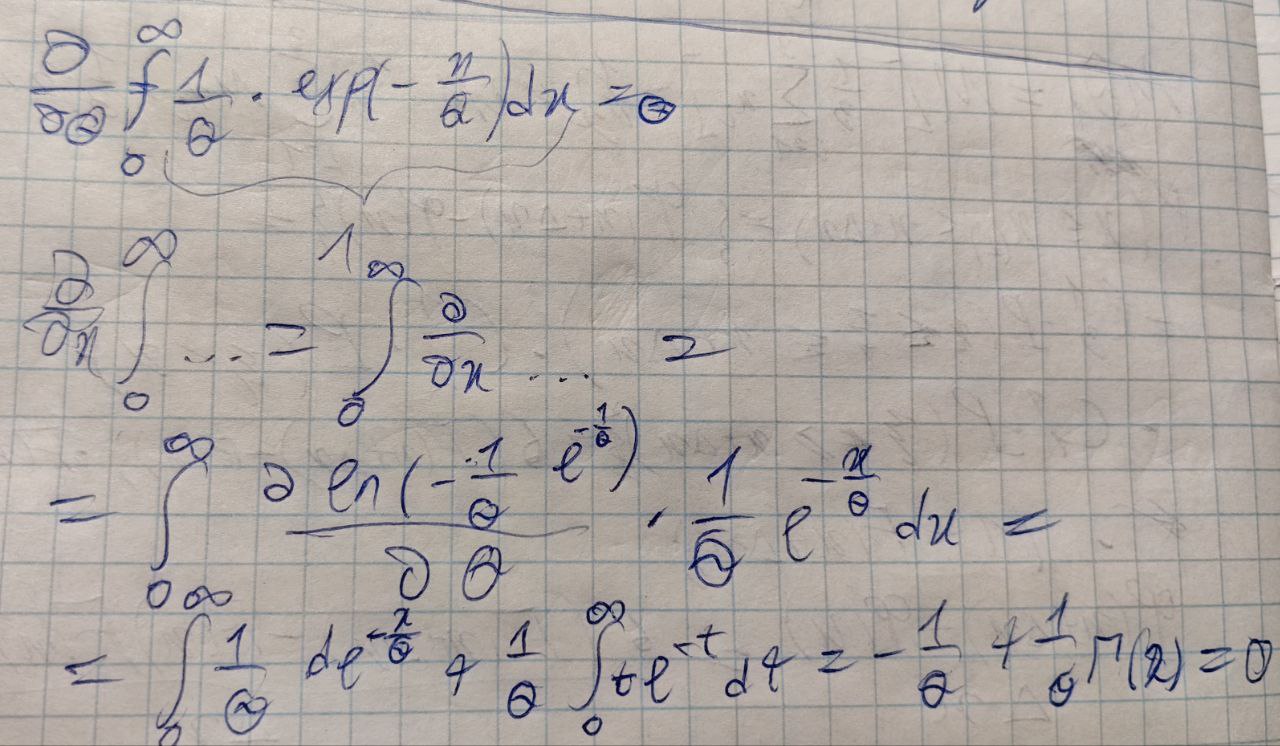 ∂/∂θ ∫₀^∞ 1/θ · exp(- x/θ) dx = 0
1
∂/∂x ∫₀^∞ ... = ∫₀^∞ ∂/∂x ... =
= ∫₀^∞ ∂ ln(- 1/θ e^(-1/θ)) / ∂θ · 1/θ e^(-x/θ) dx =
= ∫₀^∞ 1/θ de^(-x/θ) + 1/θ ∫₀^∞ te^(-t) dt = - 1/θ + 1/θ Γ(2) = 0